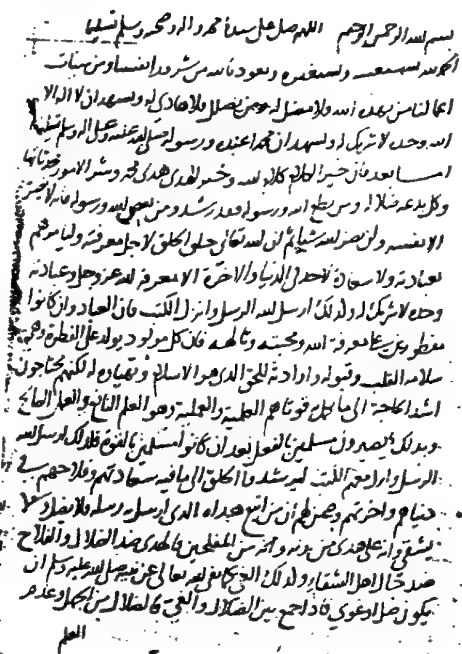 بسم الله الرحمن الرحيم اللهم صل على سيدنا محمد واله وصحبه وسلم تسليما
الحمد لله نستعينه ونستغفره ونعوذ بالله من شرور انفسنا ومن سيات
اعمالنا من يهده الله ولا مضل له ومن يضلل فلا هادي له ونشهد ان لا اله الا
الله وحده لا شريك له ونشهد ان محمدا عبده ورسوله صلى الله عليه وعلى اله وسلم تسليما
اما بعد فان خير الكلام كلام الله وخير الهدى هدى محمد وشر الامور محدثاتها
وكل بدعة ضلالة ومن يطع الله ورسوله فقد رشد ومن يعص الله ورسوله فانه لا يضر
الا نفسه ولن يضر الله شيا ثم ان الله تعالى خلق الخلق لاجل معرفته وليامرهم
بعبادته ولا سعادة لاحد في الدنيا والاخرة الا بمعرفة الله عز وجل وعبادته
وحده لا شريك له ولذلك ارسل الله الرسل وانزل الكتب فان العباد وان كانوا
مفطورين على معرفة الله ومحبته وتالهه فان كل مولود يولد على الفطرة وهي
سلامة القلب وقبوله وارادته للحق الذي هو الاسلام وتهياه له لكنهم يحتاجون
اشد الحاجة الى ما يكمل قوتاهم العلمية والعملية وهو العلم النافع والعمل الصالح
وبذلك يصيرون مسلمين بالفعل بعد ان كانوا مسلمين بالقوة فلذلك ارسل الله
الرسل وانزل معهم الكتب ليرشدوا الخلق الى ما فيه سعادتهم وفلاحهم في
دنياهم واخرتهم وضمن لهم ان من اتبع هداه الذي ارسل به رسله فلا يضل ولا
يشقى وانه على هدى من ربه وانه من المفلحين فالهدى ضد الضلال والفلاح
ضد حال اهل الشقاء ولذلك نفى الله تعالى عن نبيه صلى الله عليه وسلم ان
يكون ضل او غوي فاذا جمع بين الضلال والغي فالضلال من الجهل وعدم
العلم